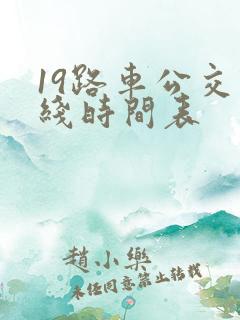 19路車公交
綫時間表
趙小樂
未經同意禁止轉載